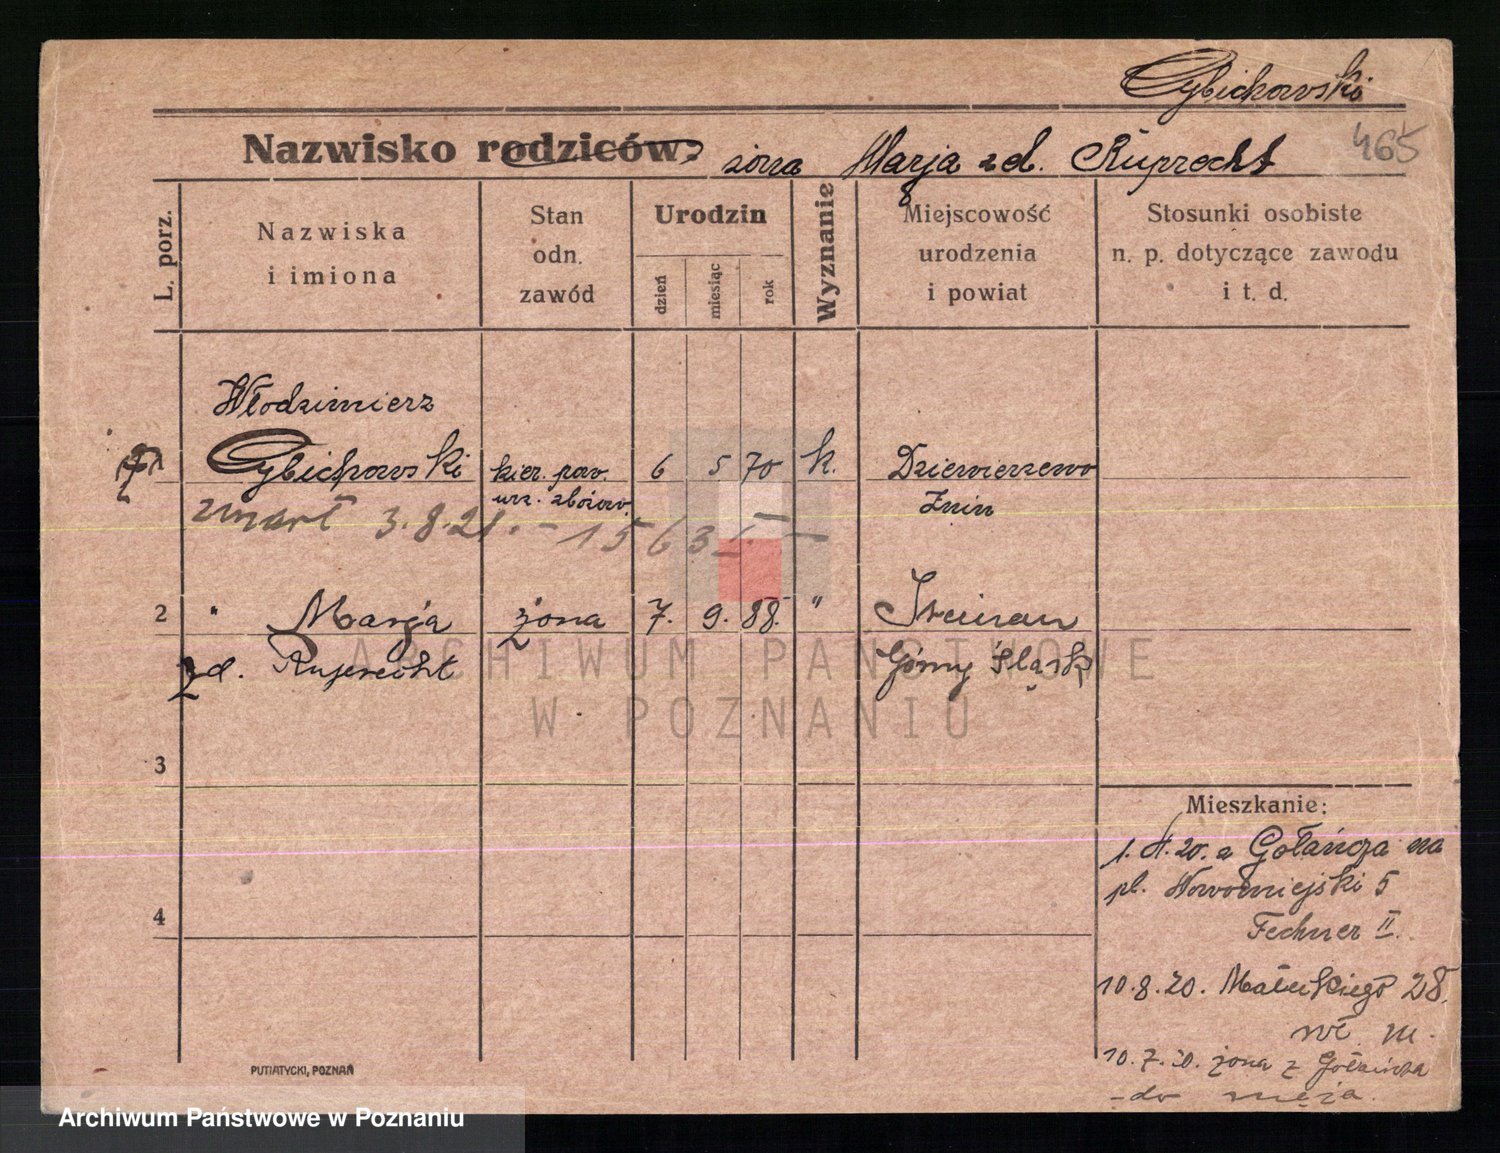 Cybichowski
465
Nazwisko rodziców: żona Marja zd. Ruprecht
L. porz.
Nazwiska
i imiona
Stan
odn.
zawód
Urodzin
dzień
miesiąc
rok
Wyznanie
Miejscowość
urodzenia
i powiat
Stosunki osobiste
n. p. dotyczące zawodu
i t. d.
Włodzimierz
Cybichowski kier. pow. 6 5 70 k. Dziewierzewo
urz. zbożow. Żnin
zmarł 3.8.21.-
2 " Marja żona 7. 9. 88. " Steinau
zd. Ruprecht Górny Śląsk
ARCHIWUM PAŃSTWOWE
W POZNANIU
3
4
Mieszkanie:
1. 4. 20. z Gołańcza na
pl. Nowomiejski 5
Fechner II.
10.8.20. Małeckiego 28.
wł. m.
10.7.20. żona z Gołańcza
- do męża.
PUTIATYCKI, POZNAŃ
Archiwum Państwowe w Poznaniu